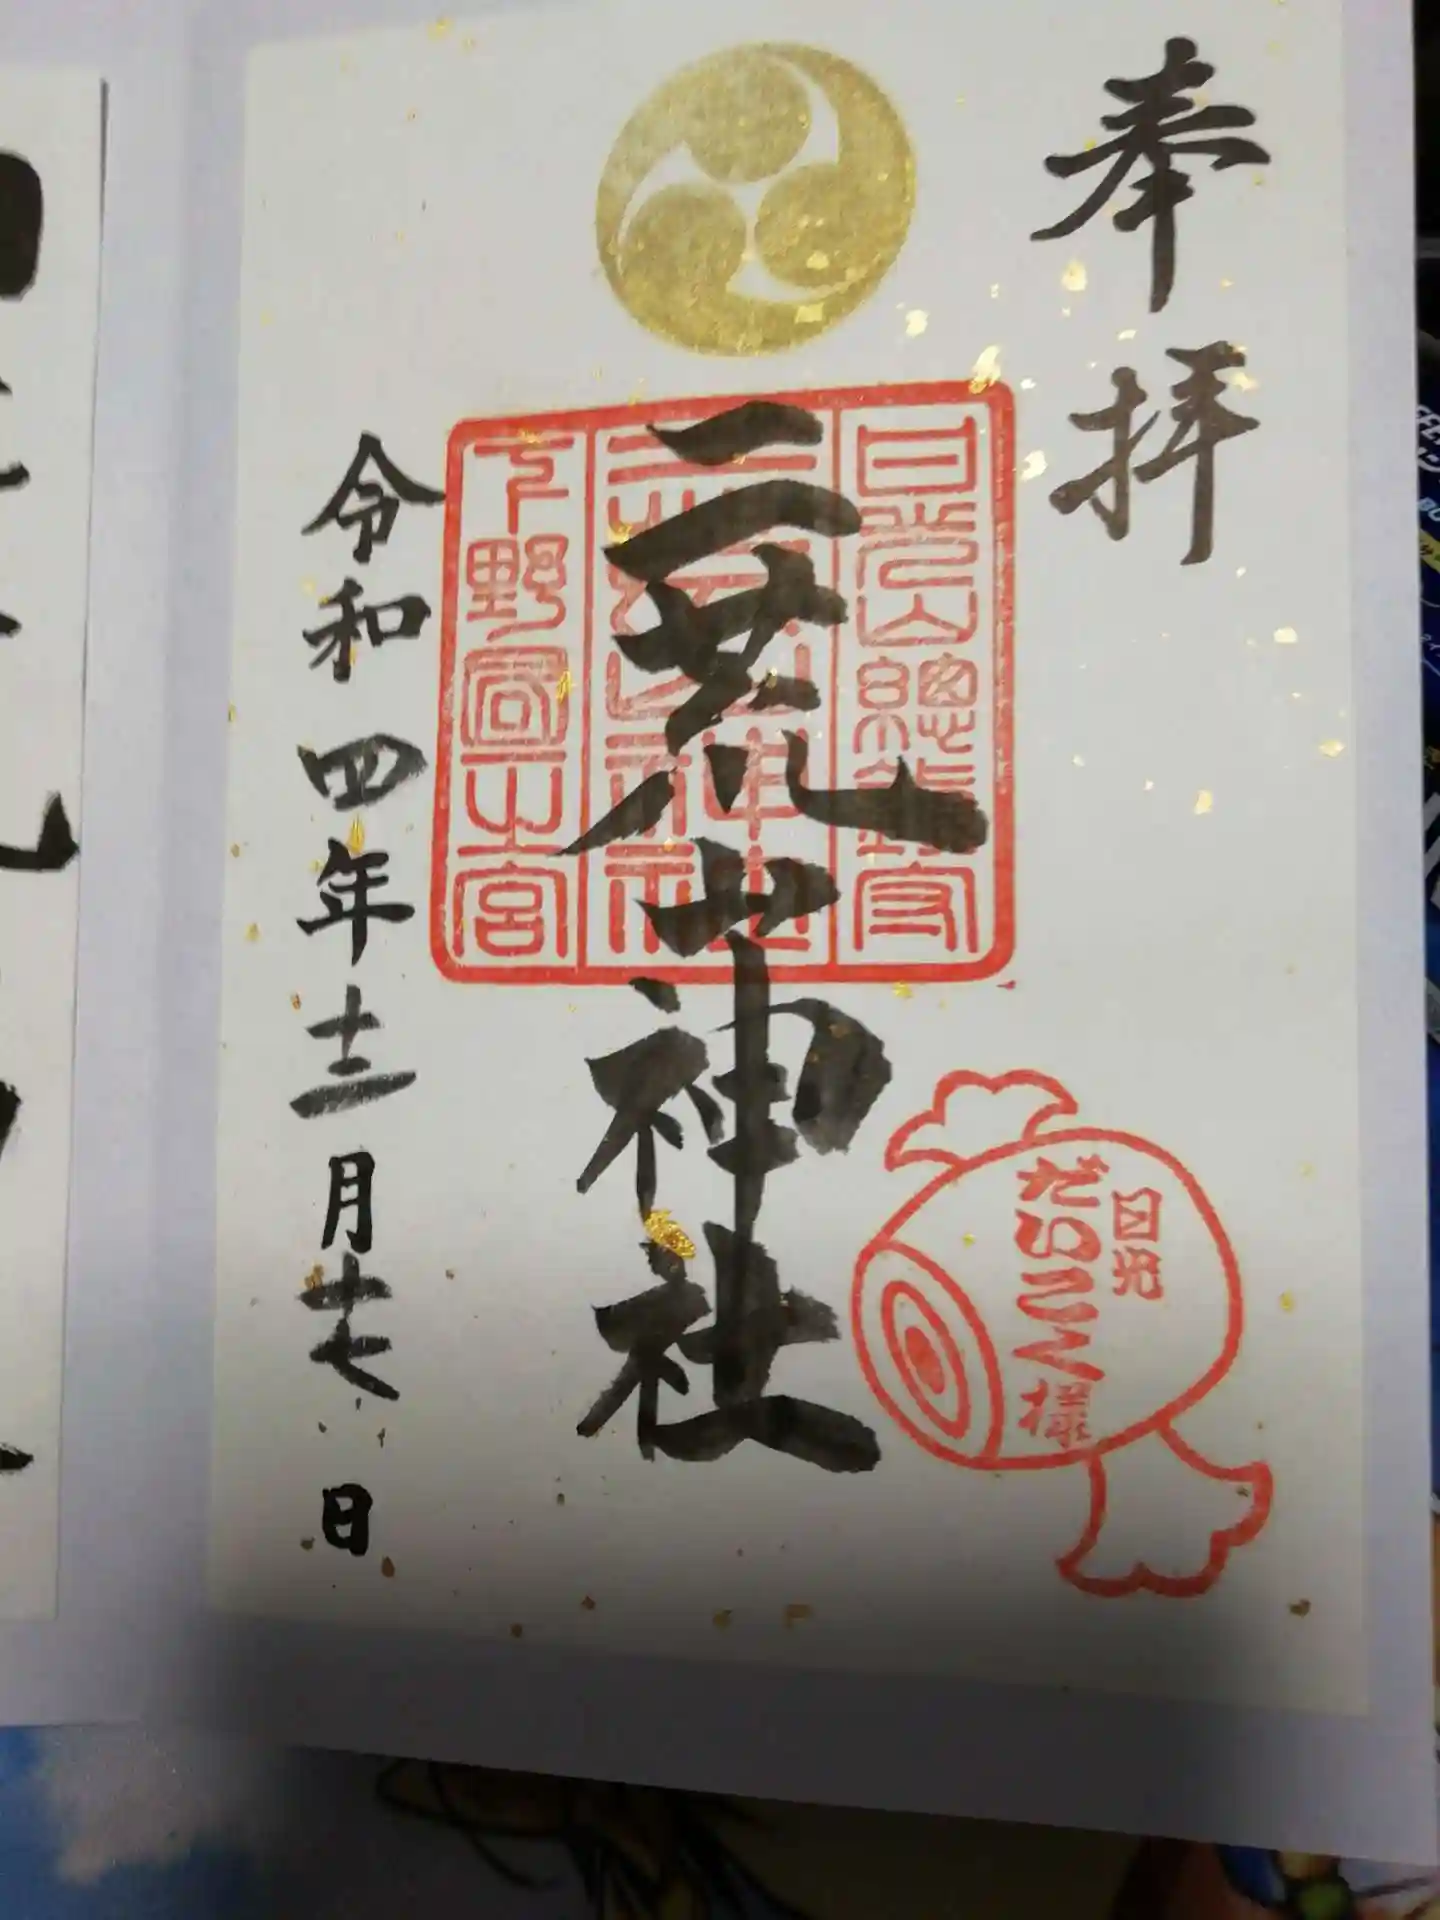 奉拝
日光山總鎮守
二荒山神社
二荒山神社
下野國一之宮
日光
だいこく様
令和四年十二月十七日